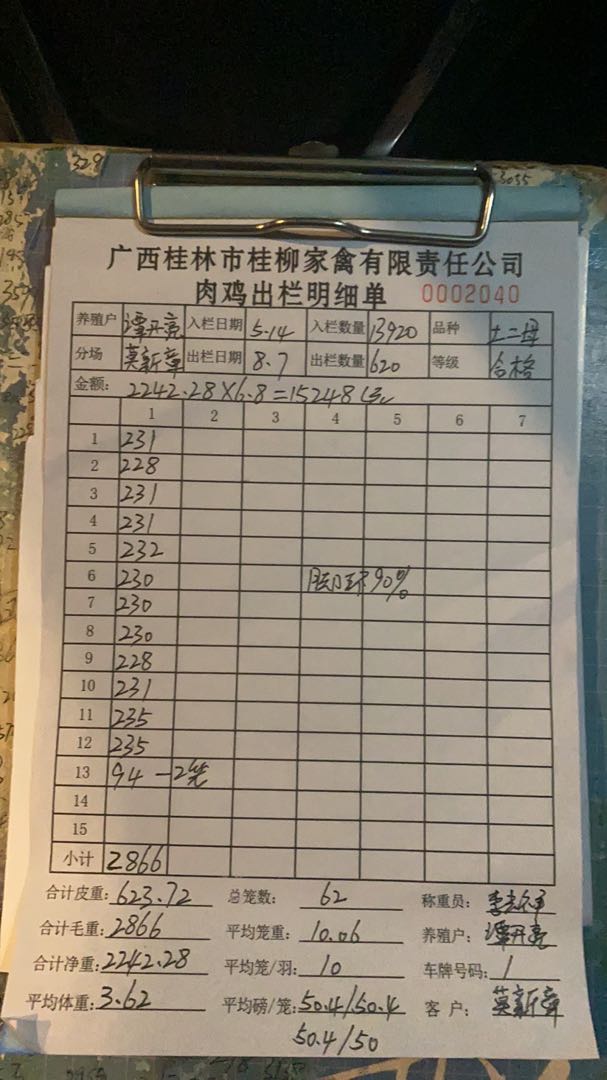 329
3055
广西桂林市桂柳家禽有限责任公司
肉鸡出栏明细单 0002040
养殖户 谭开亮 入栏日期 5.14 入栏数量 13920 品种 土二母
分场 莫新章 出栏日期 8.7 出栏数量 620 等级 合格
金额: 2242.28×6.8=15248
1 2 3 4 5 6 7
1 231
2 228
3 231
4 231
5 232
6 230 脚环90%
7 230
8 230
9 228
10 231
11 235
12 235
13 94 一2笼
14
15
小计 2866
合计皮重: 623.72 总笼数: 62 称重员:
合计毛重: 2866 平均笼重: 10.06 养殖户: 谭开亮
合计净重: 2242.28 平均笼/羽: 10 车牌号码: 1
平均体重: 3.62 平均磅/笼: 50.4/50.4 客 户: 莫新章
50.4/50